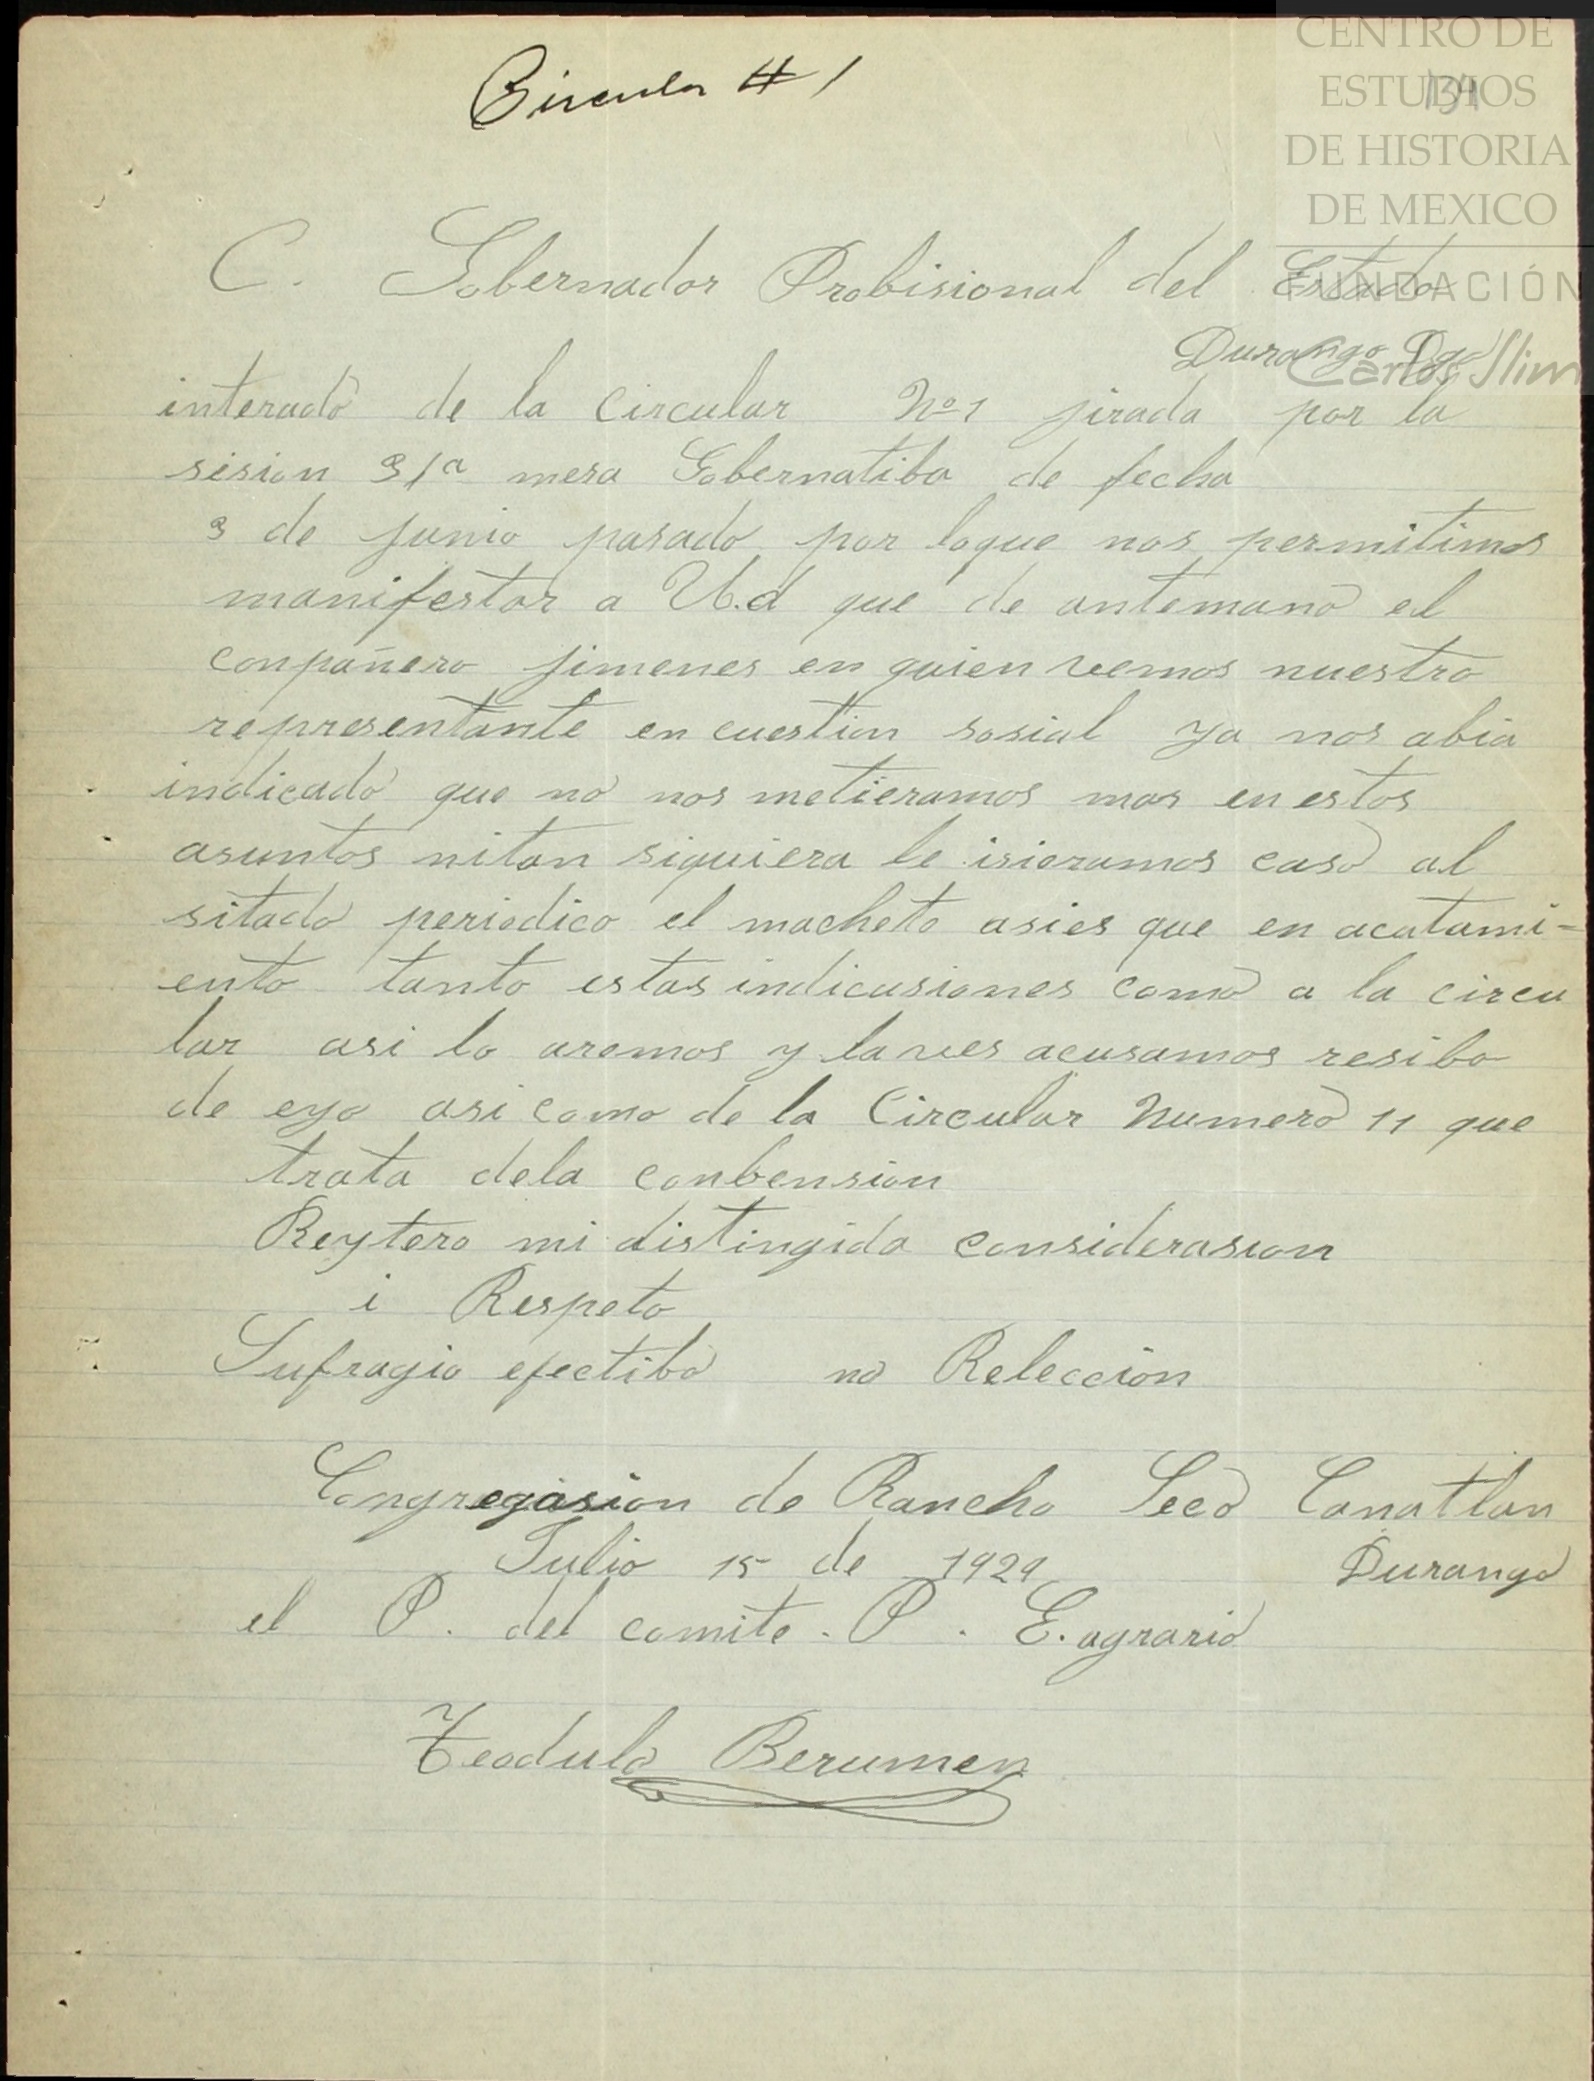 Circular # 1
CENTRO DE
ESTUDIOS
DE HISTORIA
DE MEXICO
FUNDACIÓN
Carlos Slim
C. Gobernador Probisional del Estado
Durango Dgo
interado de la Circular No 1 jirada por la
sision 3/a mesa Gobernatiba de fecha
3 de junio pasado por loque nos permitimos
manifestar a U.d que de antemano el
conpañero jimenes en quien vemos nuestro
representante en cuestion sosial ya nos abia
indicado que no nos metieramos mas en estos
asuntos nitan siquiera le isieramos caso al
sitado periodico el macheto asies que en acatami-
ento tanto estas indicasiones como a la circu
lar asi lo aremos y laves acusamos resibo
de eyo asi como de la Circular Numero 11 que
trata dela conbension
Reytero mi distingida considerasion
i Respeto
Sufragio efectibo no Relección
Congregasion de Rancho Seco Canatlan
Julio 15 de 1929 Durango
el P. del comite. P. E. agrario
Teodulo Berumen